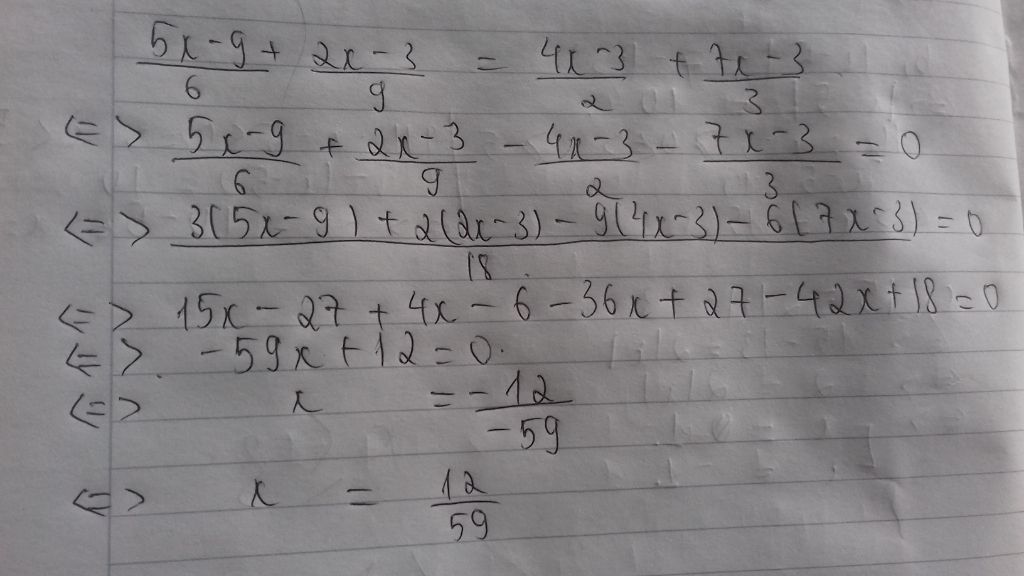 (5x-9)/6 + (2x-3)/9 = (4x-3)/2 + (7x-3)/3
<=> (5x-9)/6 + (2x-3)/9 - (4x-3)/2 - (7x-3)/3 = 0
<=> (3(5x-9) + 2(2x-3) - 9(4x-3) - 6(7x-3))/18 = 0
<=> 15x - 27 + 4x - 6 - 36x + 27 - 42x + 18 = 0
<=> -59x + 12 = 0
<=> x = -12/-59
<=> x = 12/59